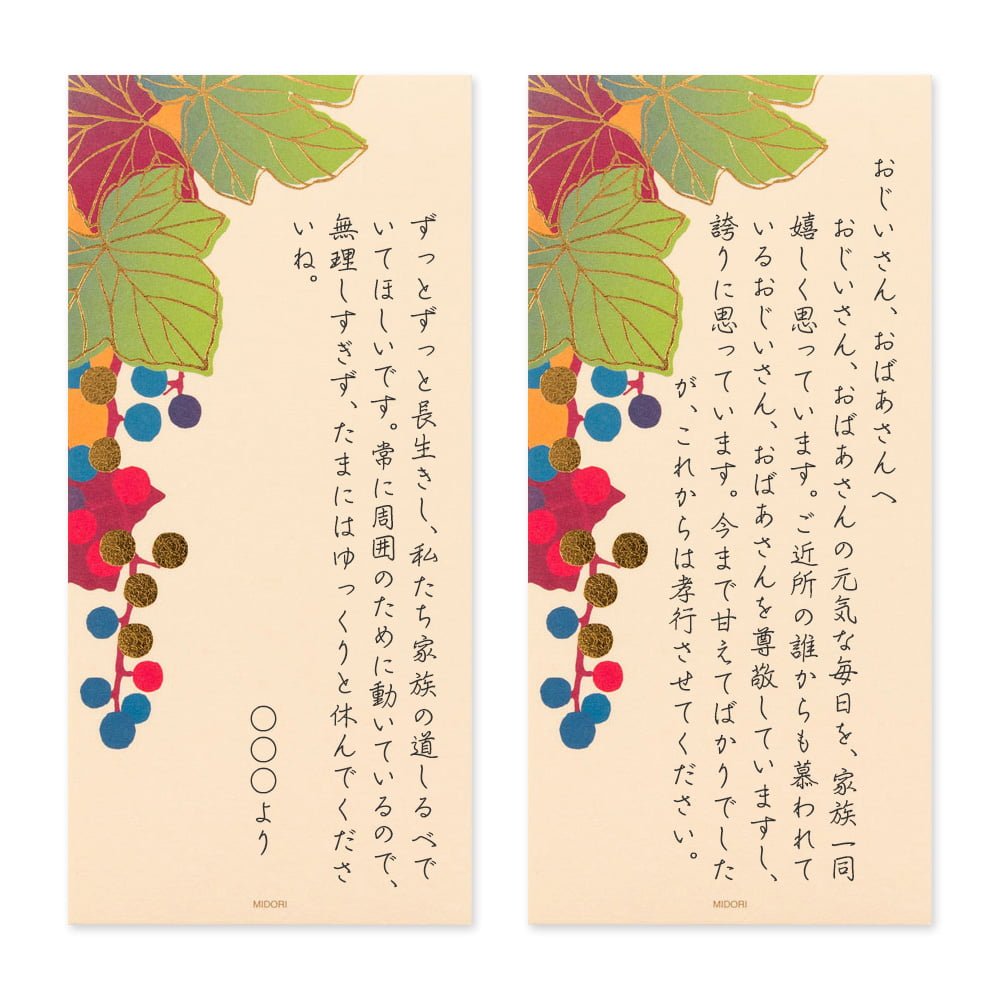 おじいさん、おばあさんへ
おじいさん、おばあさんの元気な毎日を、家族一同
嬉しく思っています。ご近所の誰からも慕われて
いるおじいさん、おばあさんを尊敬していますし、
誇りに思っています。今まで甘えてばかりでした
が、これからは孝行させてください。
MIDORI
ずっとずっと長生きし、私たち家族の道しるべで
いてほしいです。常に周囲のために動いているので、
無理しすぎず、たまにはゆっくりと休んでくださ
いね。
〇〇〇より
MIDORI